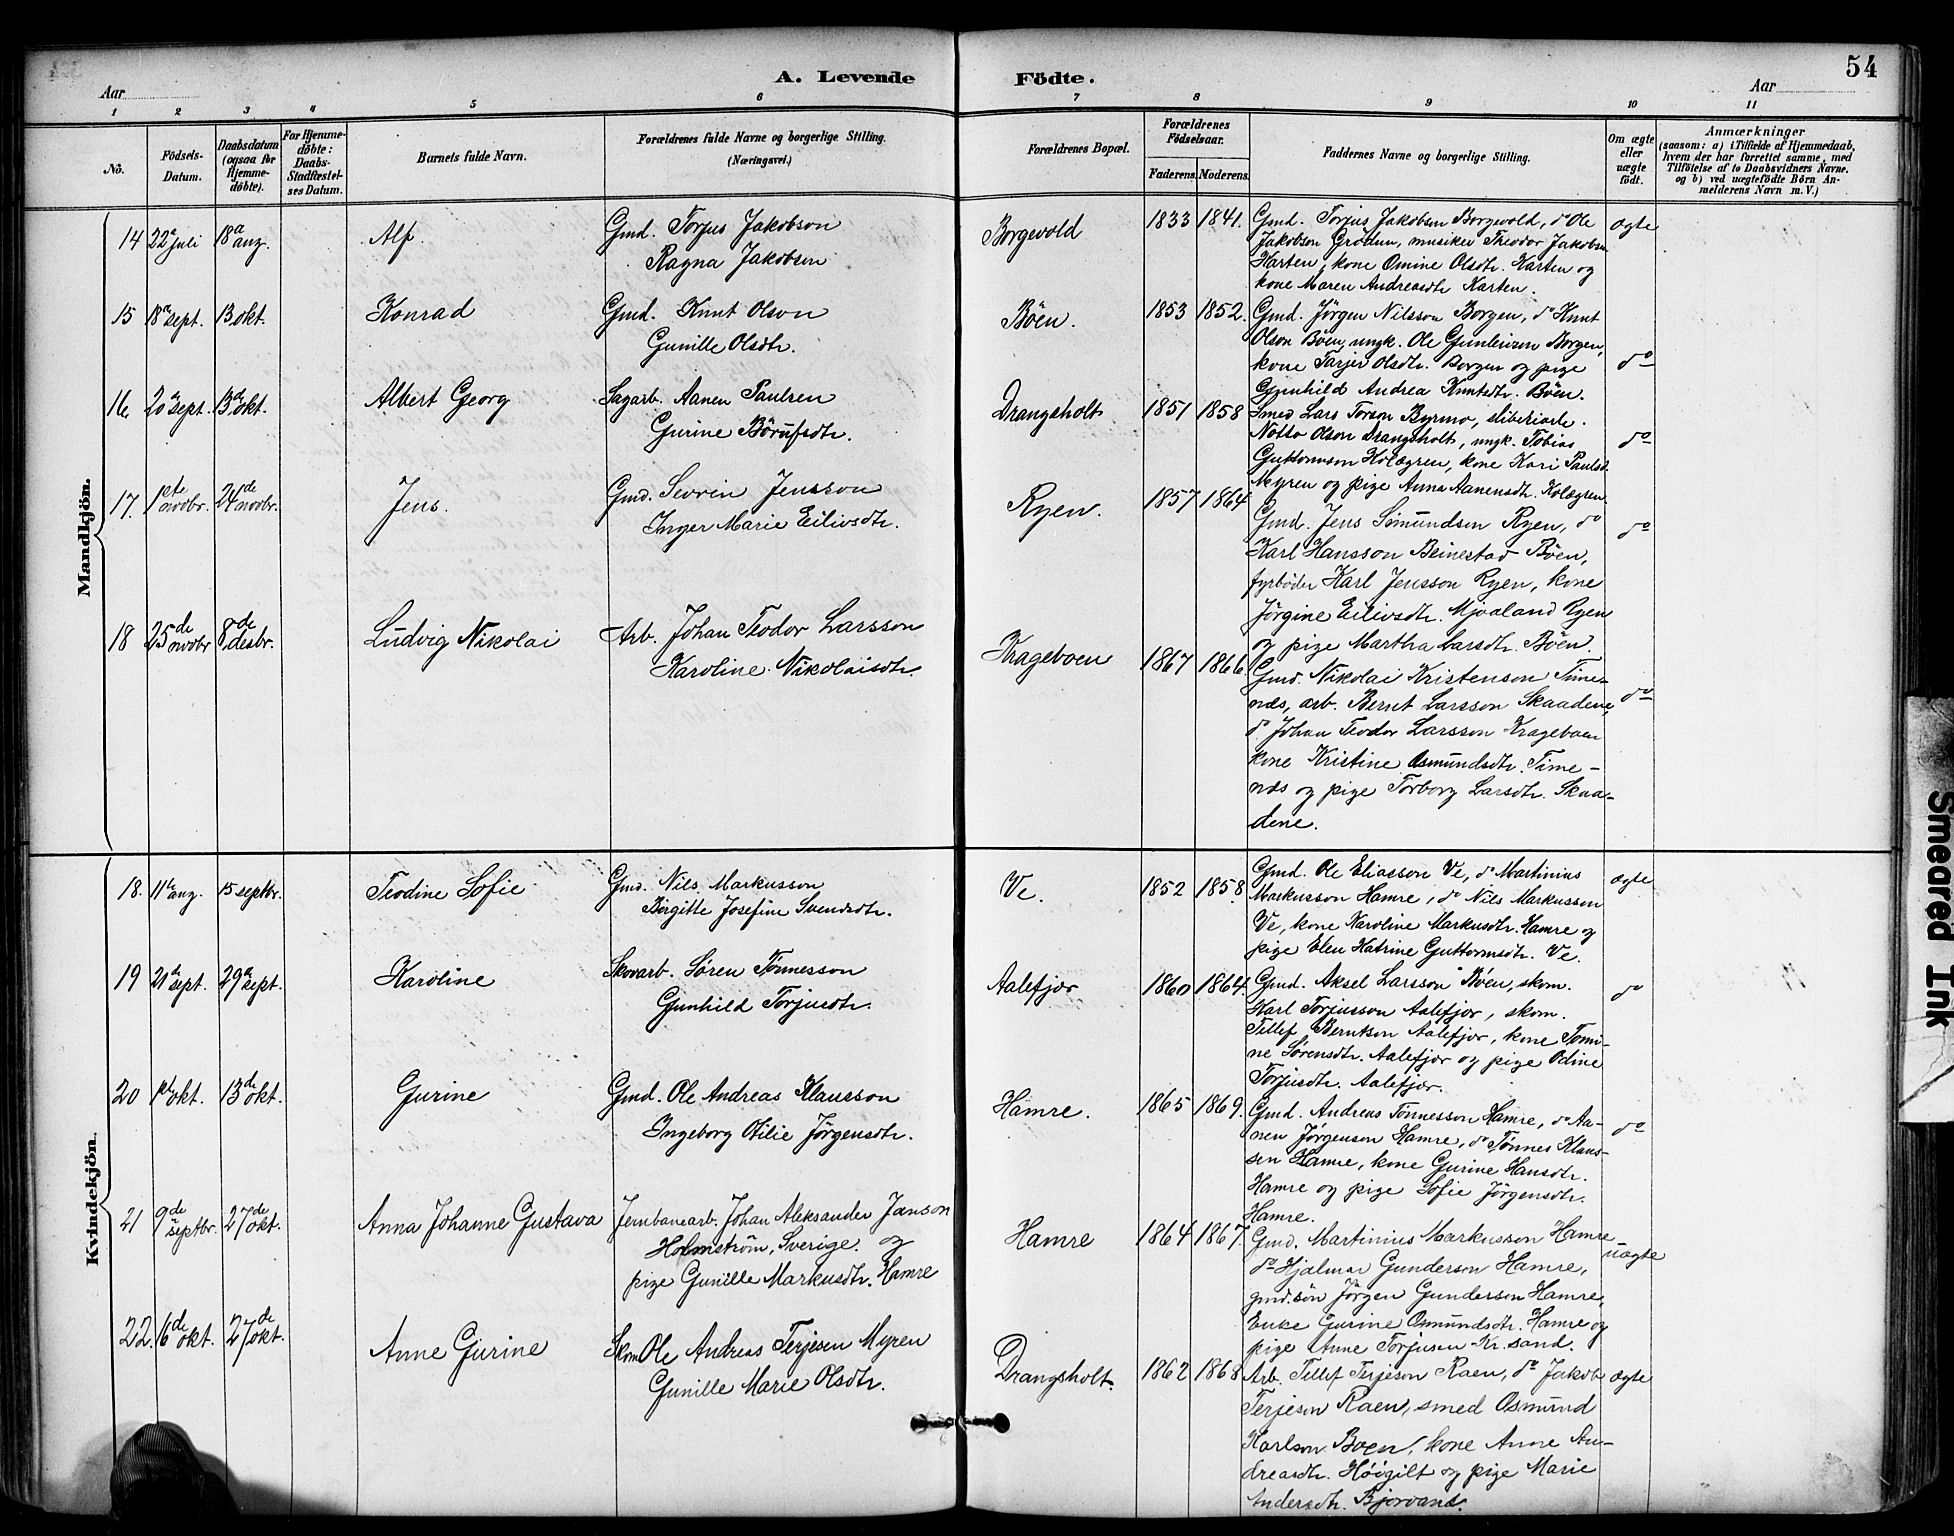 54
A. Levende Födte.
Aar
Aar
1 2 3 4 5 6 7 8 9 10 11
No.
Födsels-Datum.
Daabsdatum (ogsaa for Hjemme-döbte).
For Hjemme-döbte: Daabs-Stadfæstel-ses Datum.
Barnets fulde Navn.
Forældrenes fulde Navne og borgerlige Stilling.
(Næringsvei.)
Forældrenes Bopæl.
Forældrenes Födselsaar.
Faderens. Moderens.
Faddernes Navne og borgerlige Stilling.
Om ægte eller uægte födt.
Anmærkninger
(saasom: a) i Tilfælde af Hjemmedaab,
hvem der har forrettet samme, med
Tilföielse af to Daabsvidners Navne.
og b) ved uægtefödte Börn An-
melderens Navn m. V.)
Mandkjön.
14 22de juli 18de aug. Alf. Gmd. Torjus Jakobson
Ragna Jakobsen
Borgevold 1833 1841. Gmd. Torjus Jakobsen Borgevold, do Ole ægte
Jakobson Grödum, musiker Theodor Jakobsen
Karten, kone Omine Olsdtr. Karten og
kone Maren Andreasdtr Karten.
15 18de sept. 13 okt. Konrad Gmd. Knut Olson
Gunille Olsdtr.
Böen. 1853 1852. Gmd. Jörgen Nilsson Borgen, do Knut
Olson Böen, ungk. Ole Gunleivson Borgen,
kone Tarjer Olsdtr. Borgen og pige do
Gunhild Andrea Knutsdtr. Böen.
16 20de sept. 13de okt. Albert Georg Sagarb. Aanen Paulsen
Gurine Börufsdtr.
Drangsholt 1851 1858 Smed Lars Torson Byrmo, sliberiarb.
Notto Olson Drangsholt, ungk. Tobias do
Guttormson Kolægren, kone Kari Paulsd.
Myren og pige Anna Aanensdtr. Kolægren.
17. 1ste novbr. 24de novbr. Jens. Gmd. Sevrin Jensson
Inger Marie Eilivsdtr.
Ryen. 1857 1864 Gmd. Jens Sömundsen Ryen, do do
Karl Hansson Beinestad Böen,
fyrböder Karl Jensson Ryen, kone
Jörgine Eilivsdtr. Mjaaland Ryen
og pige Martha Larsdtr. Böen.
18 25de novbr 8de desbr. Ludvig Nikolai Arb. Johan Teodor Larsson
Karoline Nikolaisdtr.
Krageboen 1867 1866 Gmd. Nikolai Kristenson Time-
næs, arb. Bernt Larsson Skaadene, do
do Johan Teodor Larsson Krageboen
kone Kristine Osmundsdtr. Time-
næs og pige Torborg Larsdtr. Skaa-
dene.
Kvindekjön.
18. 11te aug. 15 septbr. Teodine Sofie Gmd. Nils Markusson
Birgitte Josefine Svendsdtr.
Ve. 1852 1858. Gmd. Ole Eliasson Ve, do Martinius ægte
Markusson Hamre, do Nils Markusson
Ve, kone Karoline Markusdtr. Hamre og
pige Elen Katrine Guttormsdtr. Ve.
19 21de sept. 29de sept. Karoline Skovarb. Sören Tönnesson
Gunhild Torjusdtr.
Aalefjær 1860 1864. Gmd. Aksel Larsson Böen, skom. do
Karl Torjusson Aalefjær, skom.
Tellef Berntson Aalefjær, kone Tomi-
ne Sörensdtr. Aalefjær og pige Odine
Torjusdtr. Aalefjær.
20 1ste okt. 13de okt. Gurine Gmd. Ole Andreas Klausson
Ingeborg Otilie Jörgensdtr.
Hamre. 1865 1869. Gmd. Andreas Tönnesson Hamre, do Aa- do
nen Jörgenson Hamre, do Tönnes Klaus-
sen Hamre, kone Gurine Hansdtr.
Hamre og pige Sofie Jörgensdtr.
Hamre.
21 9de septbr. 27de okt. Anna Johanne Gustava Jernbanearb. Johan Aleksander Janson
Holmström, Sverige. og
pige Gunille Markusdtr. Hamre
Hamre 1864 1867 Gmd. Martinius Markusson Hamre uægte
do Hjalmar Gunderson Hamre,
gmd.sön Jörgen Gunderson Hamre,
Enke Gurine Osmundsdtr. Hamre og
pige Anne Torjusen Kr.sand.
22. 6de okt. 27de okt. Anne Gurine Skom Ole Andreas Terjesen Myren
Gunille Marie Olsdtr.
Drangsholt. 1862 1868 Arb. Tellef Terjeson Raen, do Jakob ægte
Terjeson Raen, smed Osmund
Karlson Boen, kone Anne An-
dreasdtr. Höigilt og pige Marie
Andersdtr. Bjorvand.
Smeared Ink